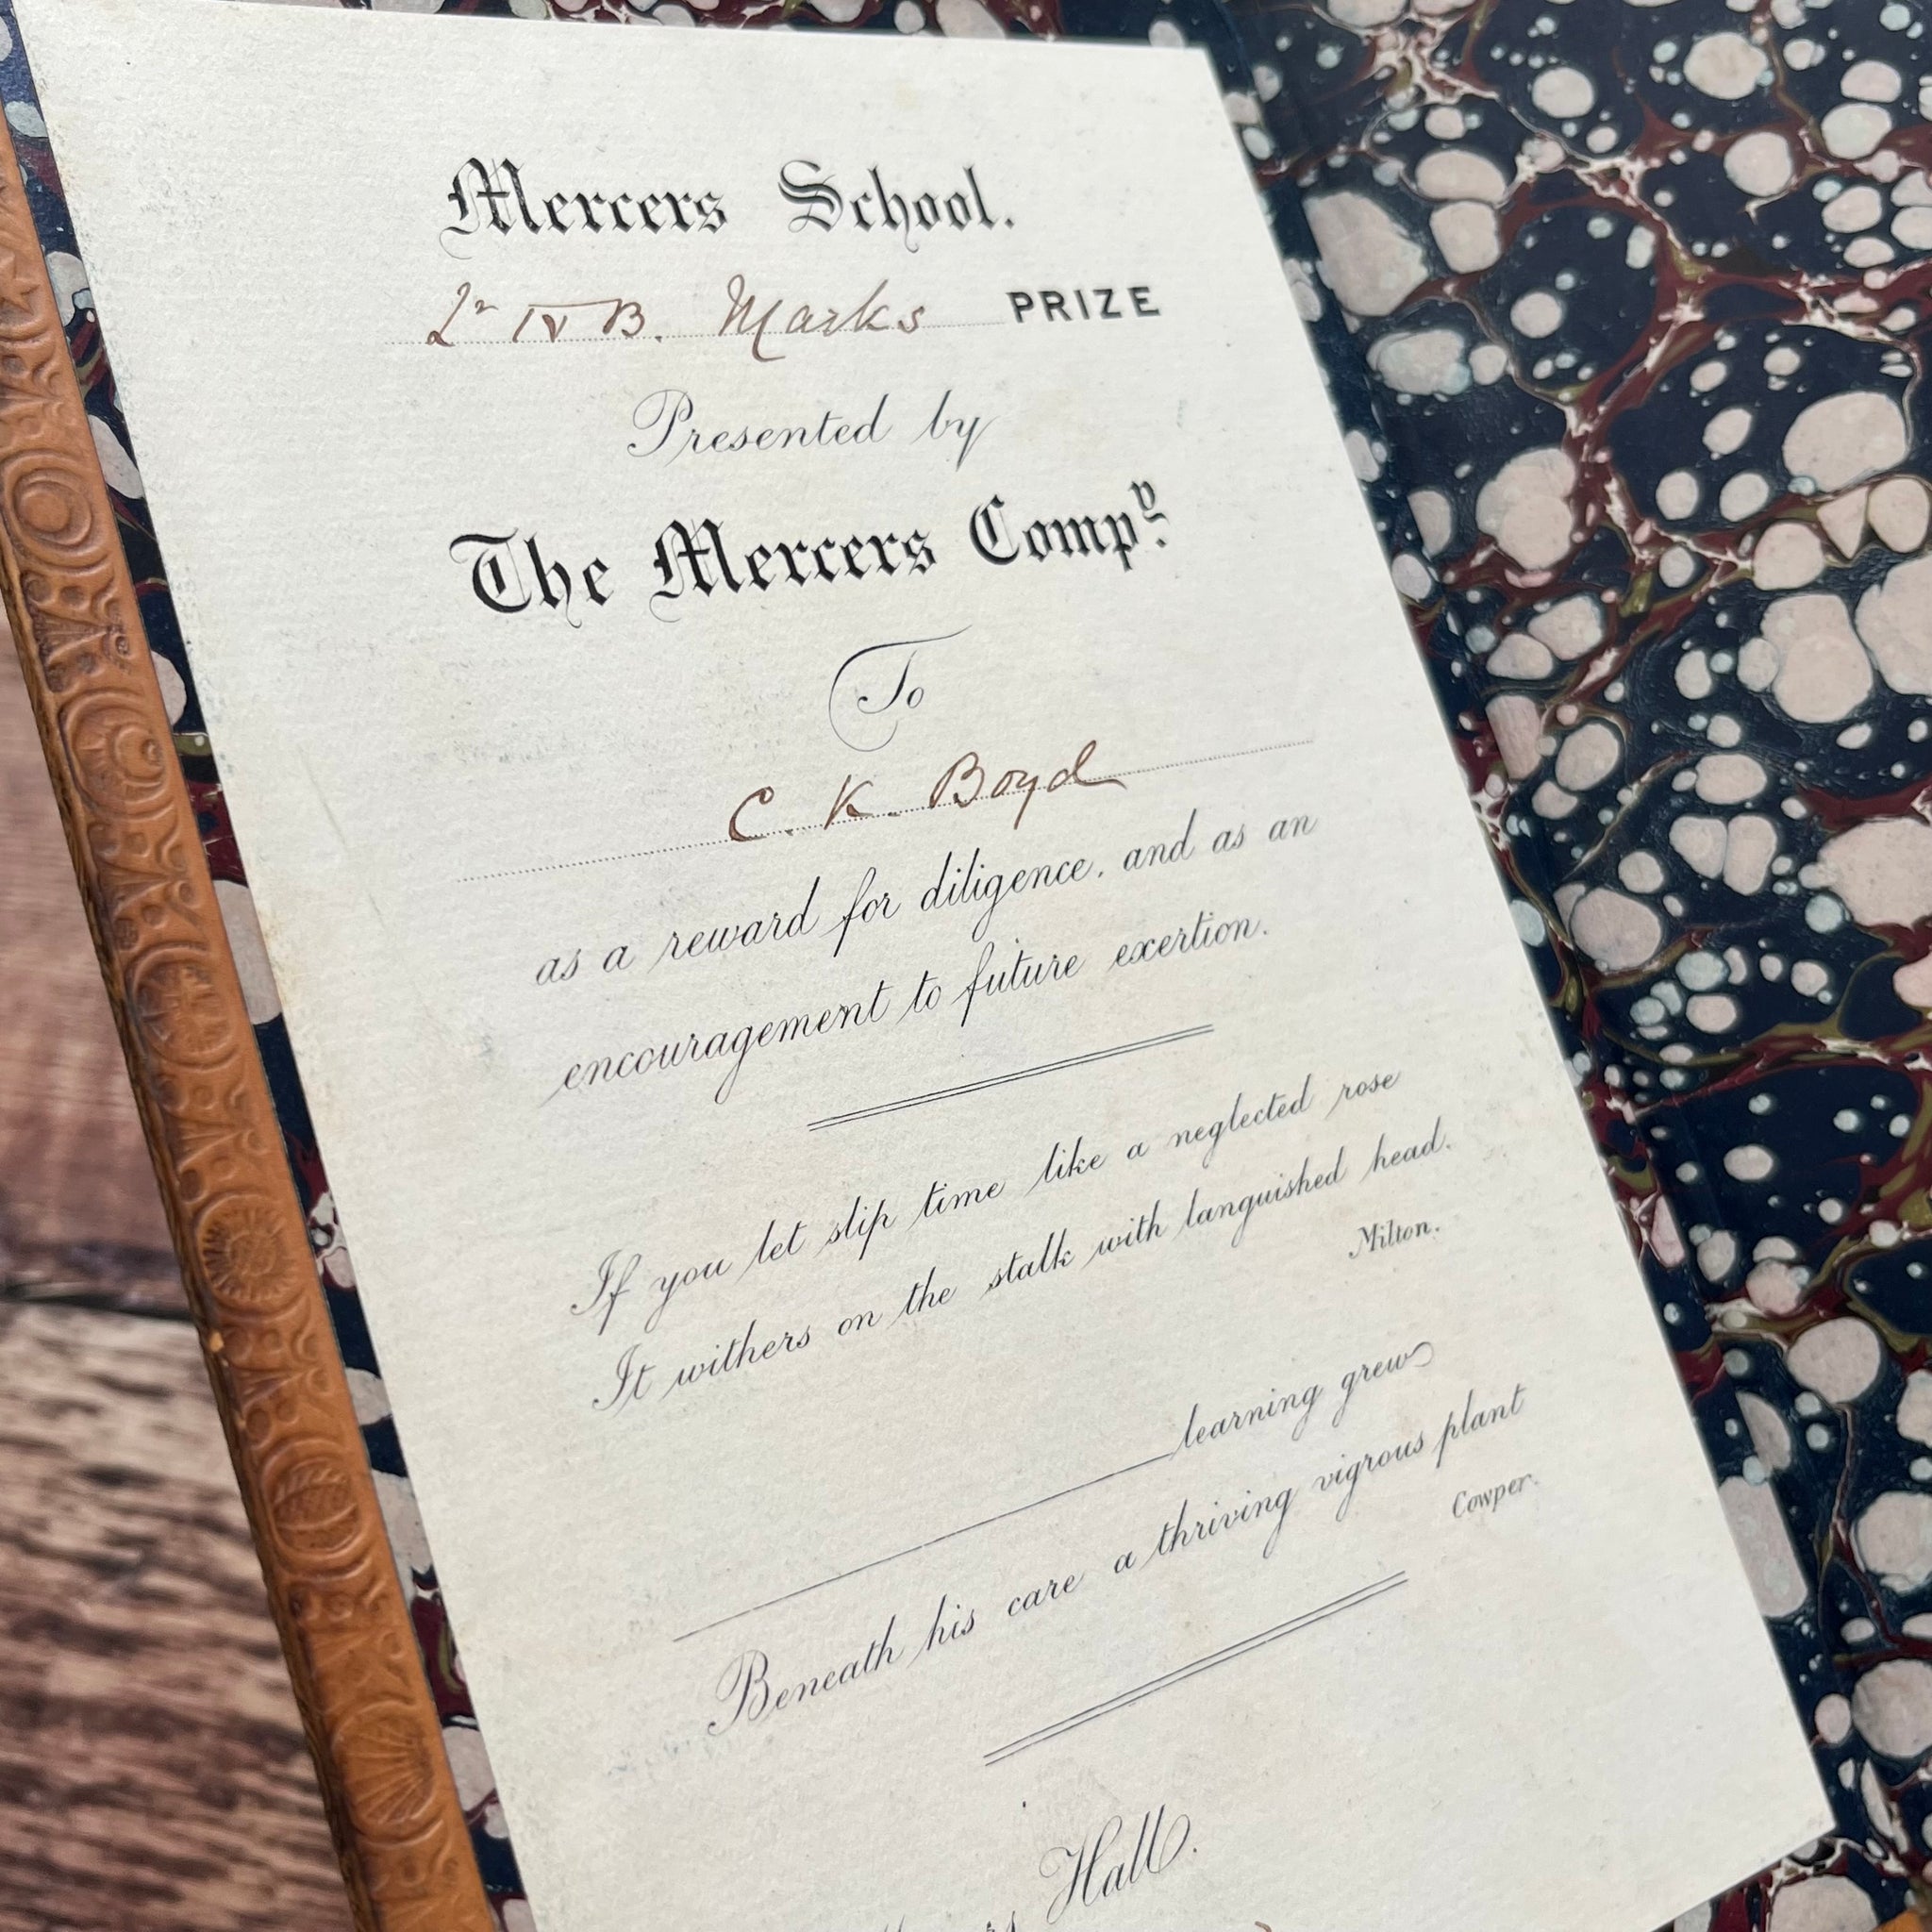 Mercers School.
Lr IV B. Marks PRIZE
Presented by
The Mercers Compy.
To
C. K. Boyd
as a reward for diligence, and as an
encouragement to future exertion.
If you let slip time like a neglected rose
It withers on the stalk with languished head.
Milton.
learning grew
Beneath his care a thriving vigrous plant
Cowper.
Hall.